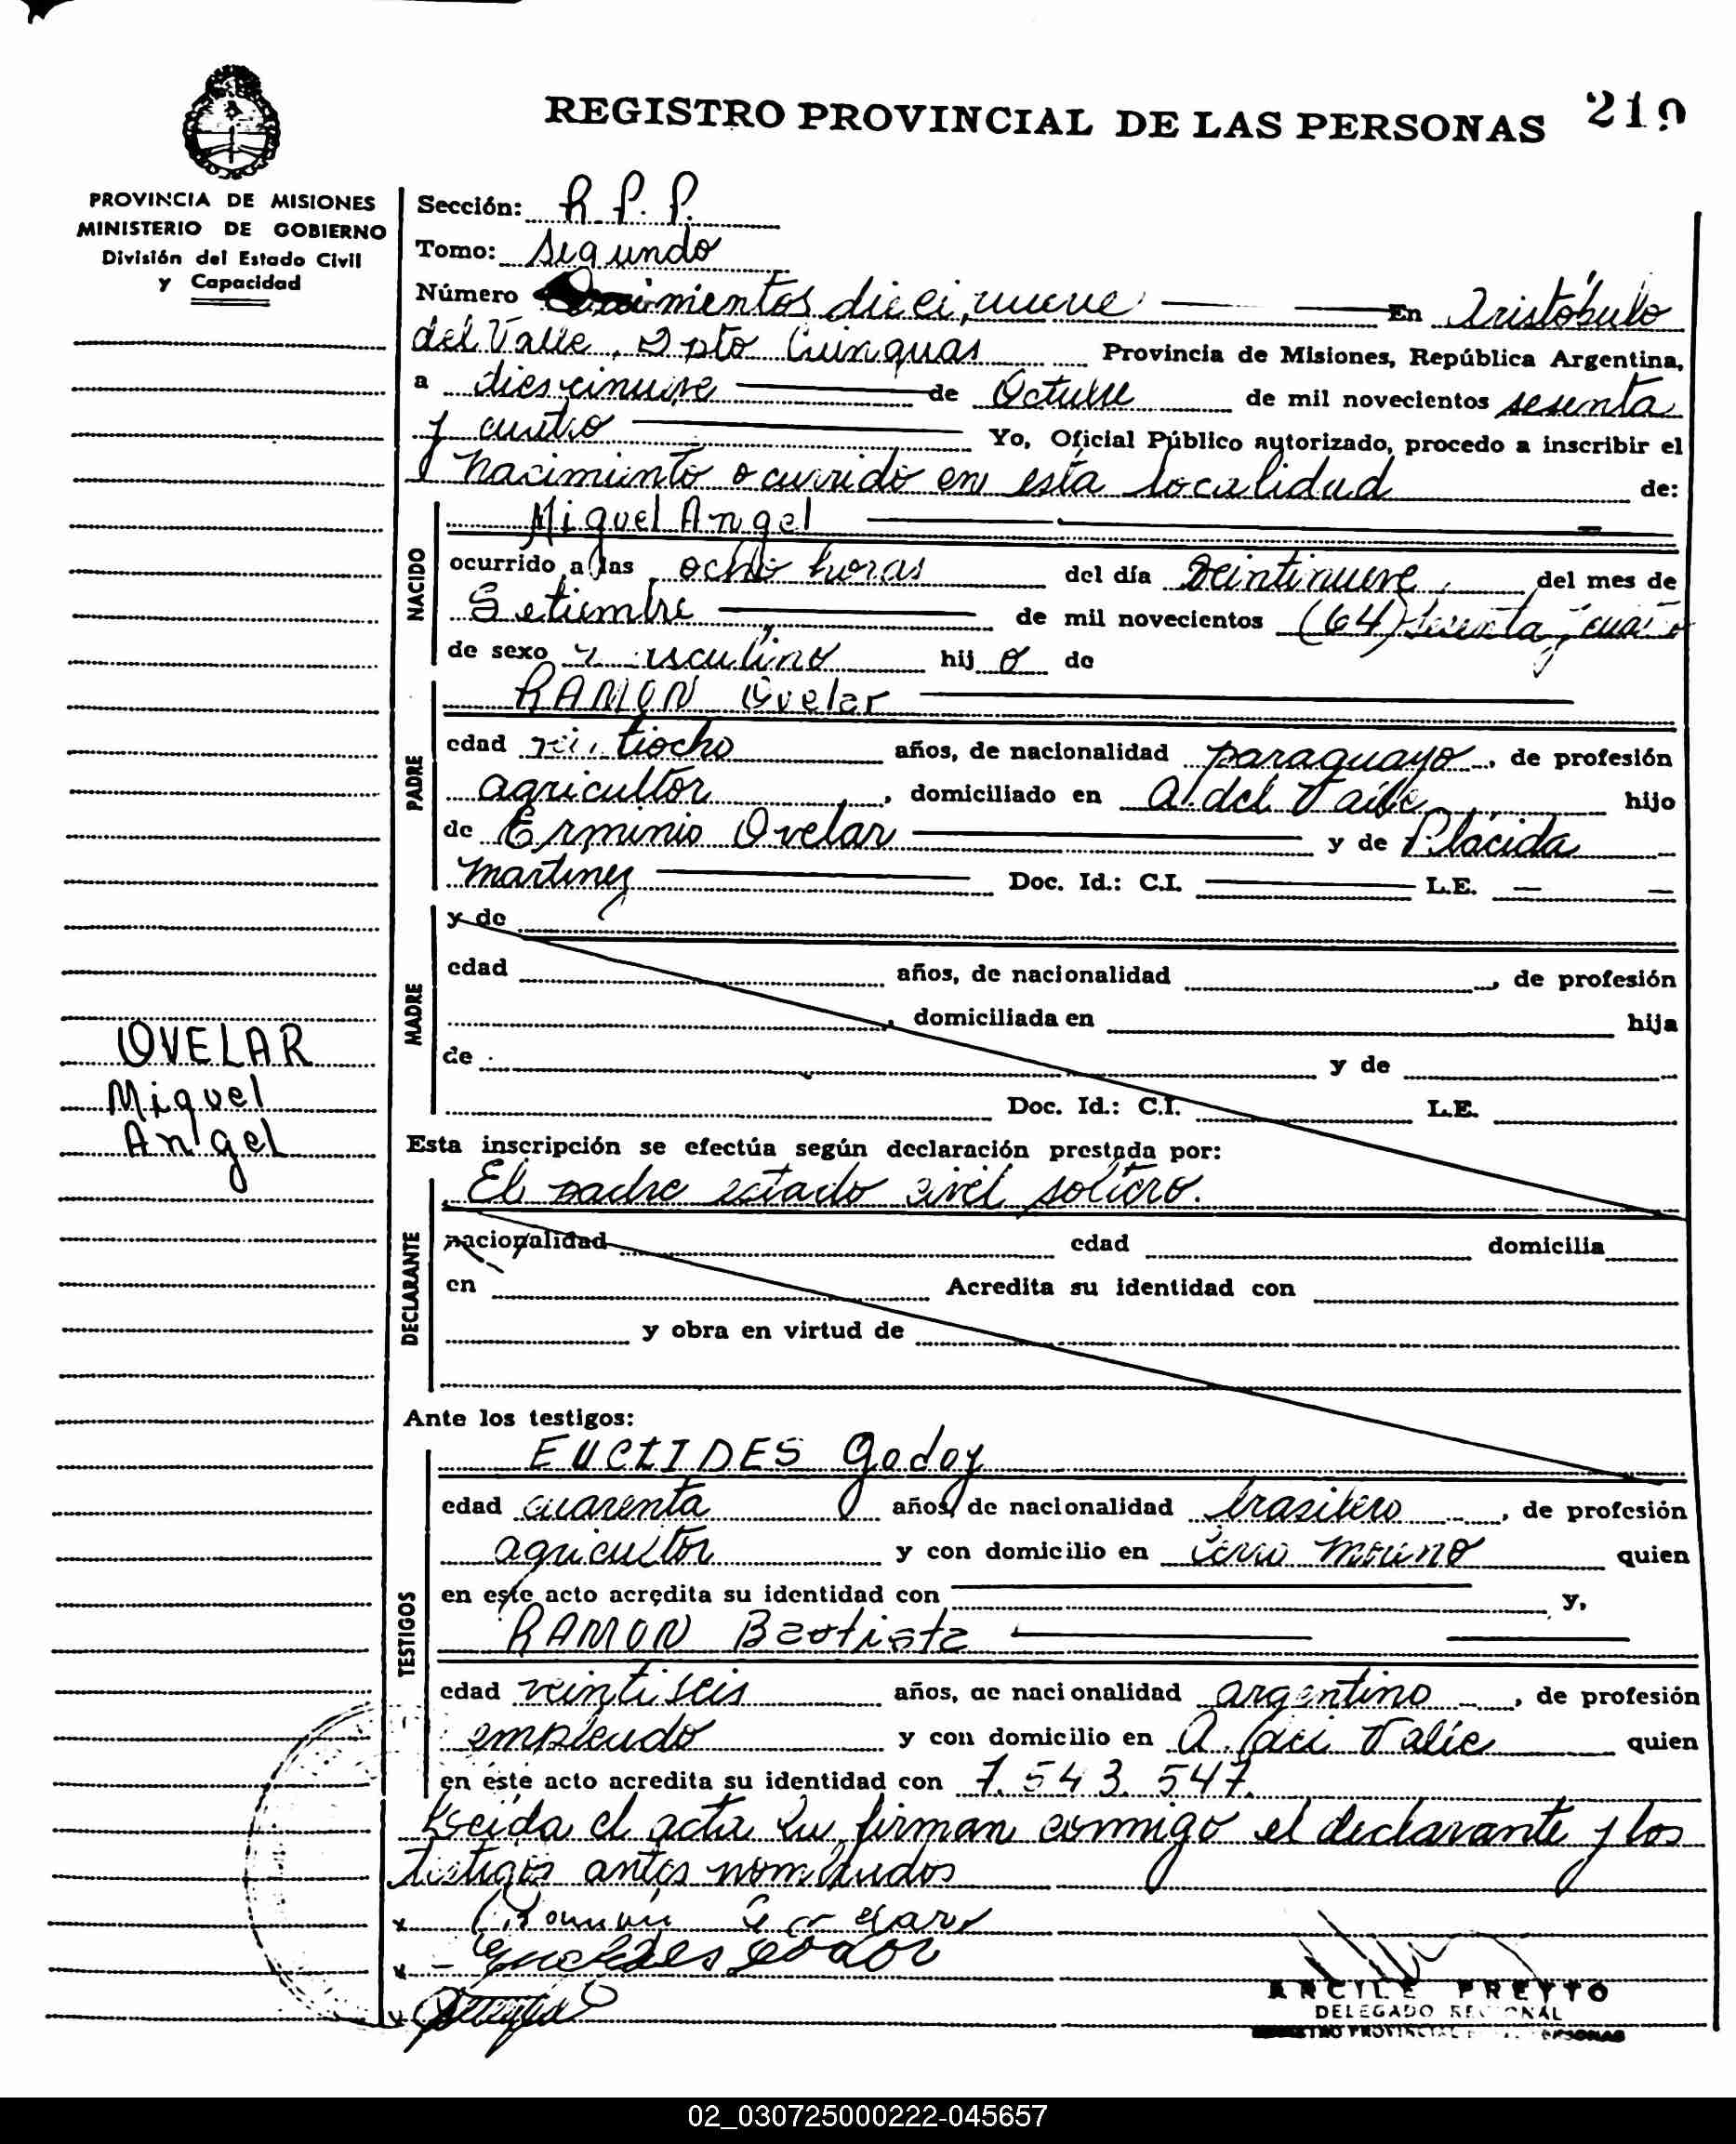 REGISTRO PROVINCIAL DE LAS PERSONAS 219
PROVINCIA DE MISIONES
MINISTERIO DE GOBIERNO
División del Estado Civil
y Capacidad
Sección: R.P.P.
Tomo: Segundo
Número dieci,nueve En Aristóbulo
del Valle, Dpto Cainguas Provincia de Misiones, República Argentina,
a diescinueve de Octubre de mil novecientos sesenta
y cuatro Yo, Oficial Público autorizado, procedo a inscribir el
nacimiento ocurrido en esta localidad de:
NACIDO
Miguel Angel
ocurrido a las ocho horas del día veintinueve del mes de
Setiembre de mil novecientos (64) sesenta y cuatro
de sexo masculino hijo de
PADRE
RAMON Ovelar
edad veintiocho años, de nacionalidad paraguayo, de profesión
agricultor, domiciliado en A. del Valle hijo
de Erminio Ovelar y de Plácida
Martinez Doc. Id.: C.I. L.E.
MADRE
y de
edad años, de nacionalidad , de profesión
, domiciliada en hija
de y de
Doc. Id.: C.I. L.E.
OVELAR
Miguel
Angel
Esta inscripción se efectúa según declaración prestada por:
DECLARANTE
El padre estado civil soltero.
nacionalidad edad domicilia
en Acredita su identidad con
y obra en virtud de
Ante los testigos:
TESTIGOS
EUCLIDES Godoy
edad cuarenta años, de nacionalidad brasilero, de profesión
agricultor y con domicilio en Cerro Moreno quien
en este acto acredita su identidad con y,
RAMON Bautista
edad veintiseis años, de nacionalidad argentino, de profesión
empleado y con domicilio en A. del Valle quien
en este acto acredita su identidad con 7.543.547.
Leida el acta la firman conmigo el declarante y los
testigos antes nombrados
x
x - Euclides Godoy
x
ARCILE PREYTO
DELEGADO REGIONAL
REGISTRO PROVINCIAL DE LAS PERSONAS
02_030725000222-045657